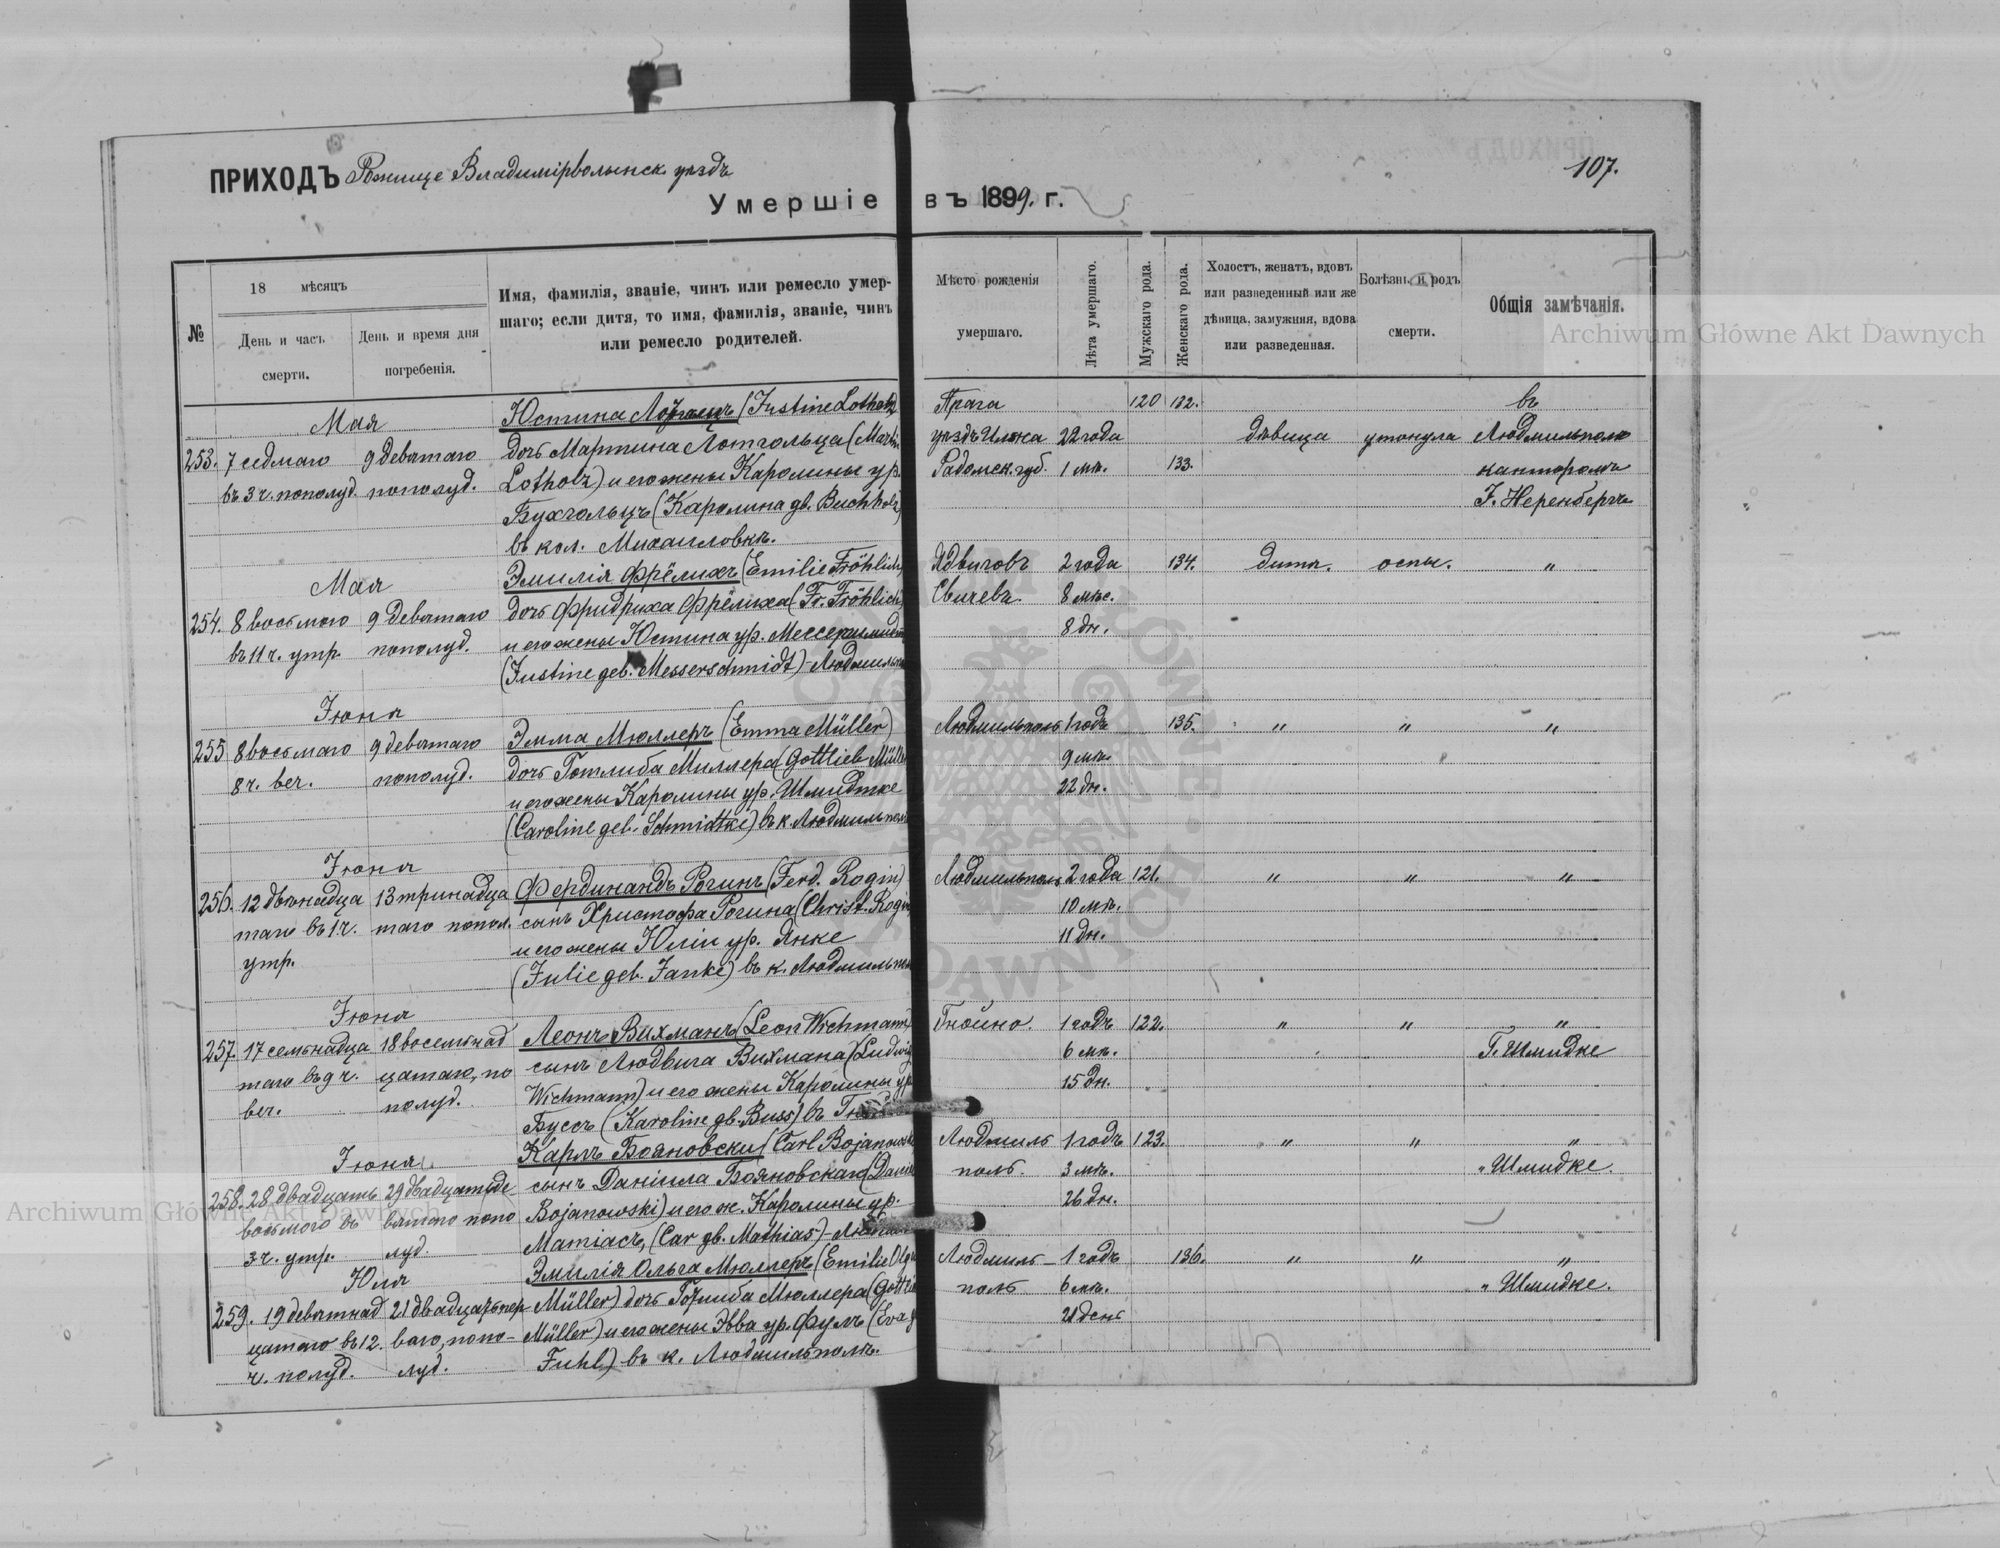 ПРИХОДЪ Рожище Владимірволынск. уѣздъ
107.
Умершіе въ 1899. г.
№
18 мѣсяцъ
День и часъ смерти.
День и время дня погребенія.
Имя, фамилія, званіе, чинъ или ремесло умер-
шаго; если дитя, то имя, фамилія, званіе, чинъ
или ремесло родителей.
Мѣсто рожденія умершаго.
Лѣта умершаго.
Мужскаго рода.
Женскаго рода.
Холостъ, женатъ, вдовъ
или разведенный или же
дѣвица, замужняя, вдова
или разведенная.
Болѣзнь и родъ смерти.
Общія замѣчанія.
Archiwum Główne Akt Dawnych
Мая
253. 7 седмаго
въ 3 ч. пополуд.
9 девятаго
пополуд.
Юстина (Justine Lotholz)
дочь Мартина Лотгольца (Martin
Lotholz) и его жены Каролины ур.
Бухгольцъ (Каролина gb. Buchholz)
въ кол. Михаиловкѣ.
Прага
уѣздъ Илжа
Радомск. губ.
22 года
1 мѣ.
120 132.
133.
дѣвица
утонула
въ
Людмильполѣ
канторомъ
F. Неренбергъ
Мая
254. 8 восьмого
въ 11 ч. утр.
9 девятаго
пополуд.
Эмилія Фрёлихъ (Emilie Fröhlich)
дочь Фридриха Фрёлиха (Fr. Fröhlich)
и его жены Юстина ур. Мессершмидт
(Justine geb. Messerschmidt) - Людмильп
Ядвиговъ
Свичевъ
2 года
8 мѣс.
8 дн.
134.
дитя.
оспы.
"
Іюня
255 8 восьмаго
8 ч. веч.
9 девятаго
пополуд.
Эмма Мюллеръ (Emma Müller)
дочь Готлиба Миллера (Gottlieb Müller
и его жены Каролины ур. Шмидтке
(Caroline geb. Schmidtke) въ к. Людмильпол
Людмильполь
1 годъ
9 мѣ.
22 дн.
135.
" " "
Іюня
256. 12 двѣнадца
таго въ 1 ч.
утр.
13 тринадца
таго попол.
Фердинандъ Рогинъ (Ferd. Rogin)
сынъ Христофа Рогина (Christ. Rogin
и его жены Юліи ур. Янке
(Julie geb. Janke) въ к. Людмильпол
Людмильполь
2 года
10 мѣ.
11 дн.
121.
" " "
Іюня
257. 17 семьнадца
таго въ 9 ч.
веч.
18 восемьнад
цатаго, по
полуд.
Леонъ Вихманъ (Leon Wichmann)
сынъ Людвига Вихмана (Ludwig
Wichmann) и его жены Каролины ур.
Буссъ (Karoline gb. Buss) въ
Гнойно.
1 годъ
6 мѣ.
15 дн.
122.
" " "
Г. Шмидке
Іюня
258. 28 двадцать
восьмого въ
3 ч. утр.
29 двадцатьде
вятаго попо
луд.
Карлъ Бояновски (Carl Bojanowski
сынъ Даніила Бояновскаго (Daniel
Bojanowski) и его ж. Каролины ур.
Матіасъ, (Car gb. Mathias) -
Людмиль
поль.
1 годъ
3 мѣ.
26 дн.
123.
" " "
" Шмидке.
Юля
259. 19 девятнад
цатаго въ 12.
ч. полуд.
21 двадцатьпер-
ваго, попо-
луд.
Эмилія Ольга Мюллеръ (Emilie Olga
Müller) дочь Готлиба Мюллера (Gottlieb
Müller) и его жены Эвва ур. Фулъ (Eva g
Fuhl) въ к. Людмильполѣ.
Людмиль-
поль
1 годъ
6 мѣ.
21 день
136.
" " "
" Шмидке.
Archiwum Główne Akt Dawnych